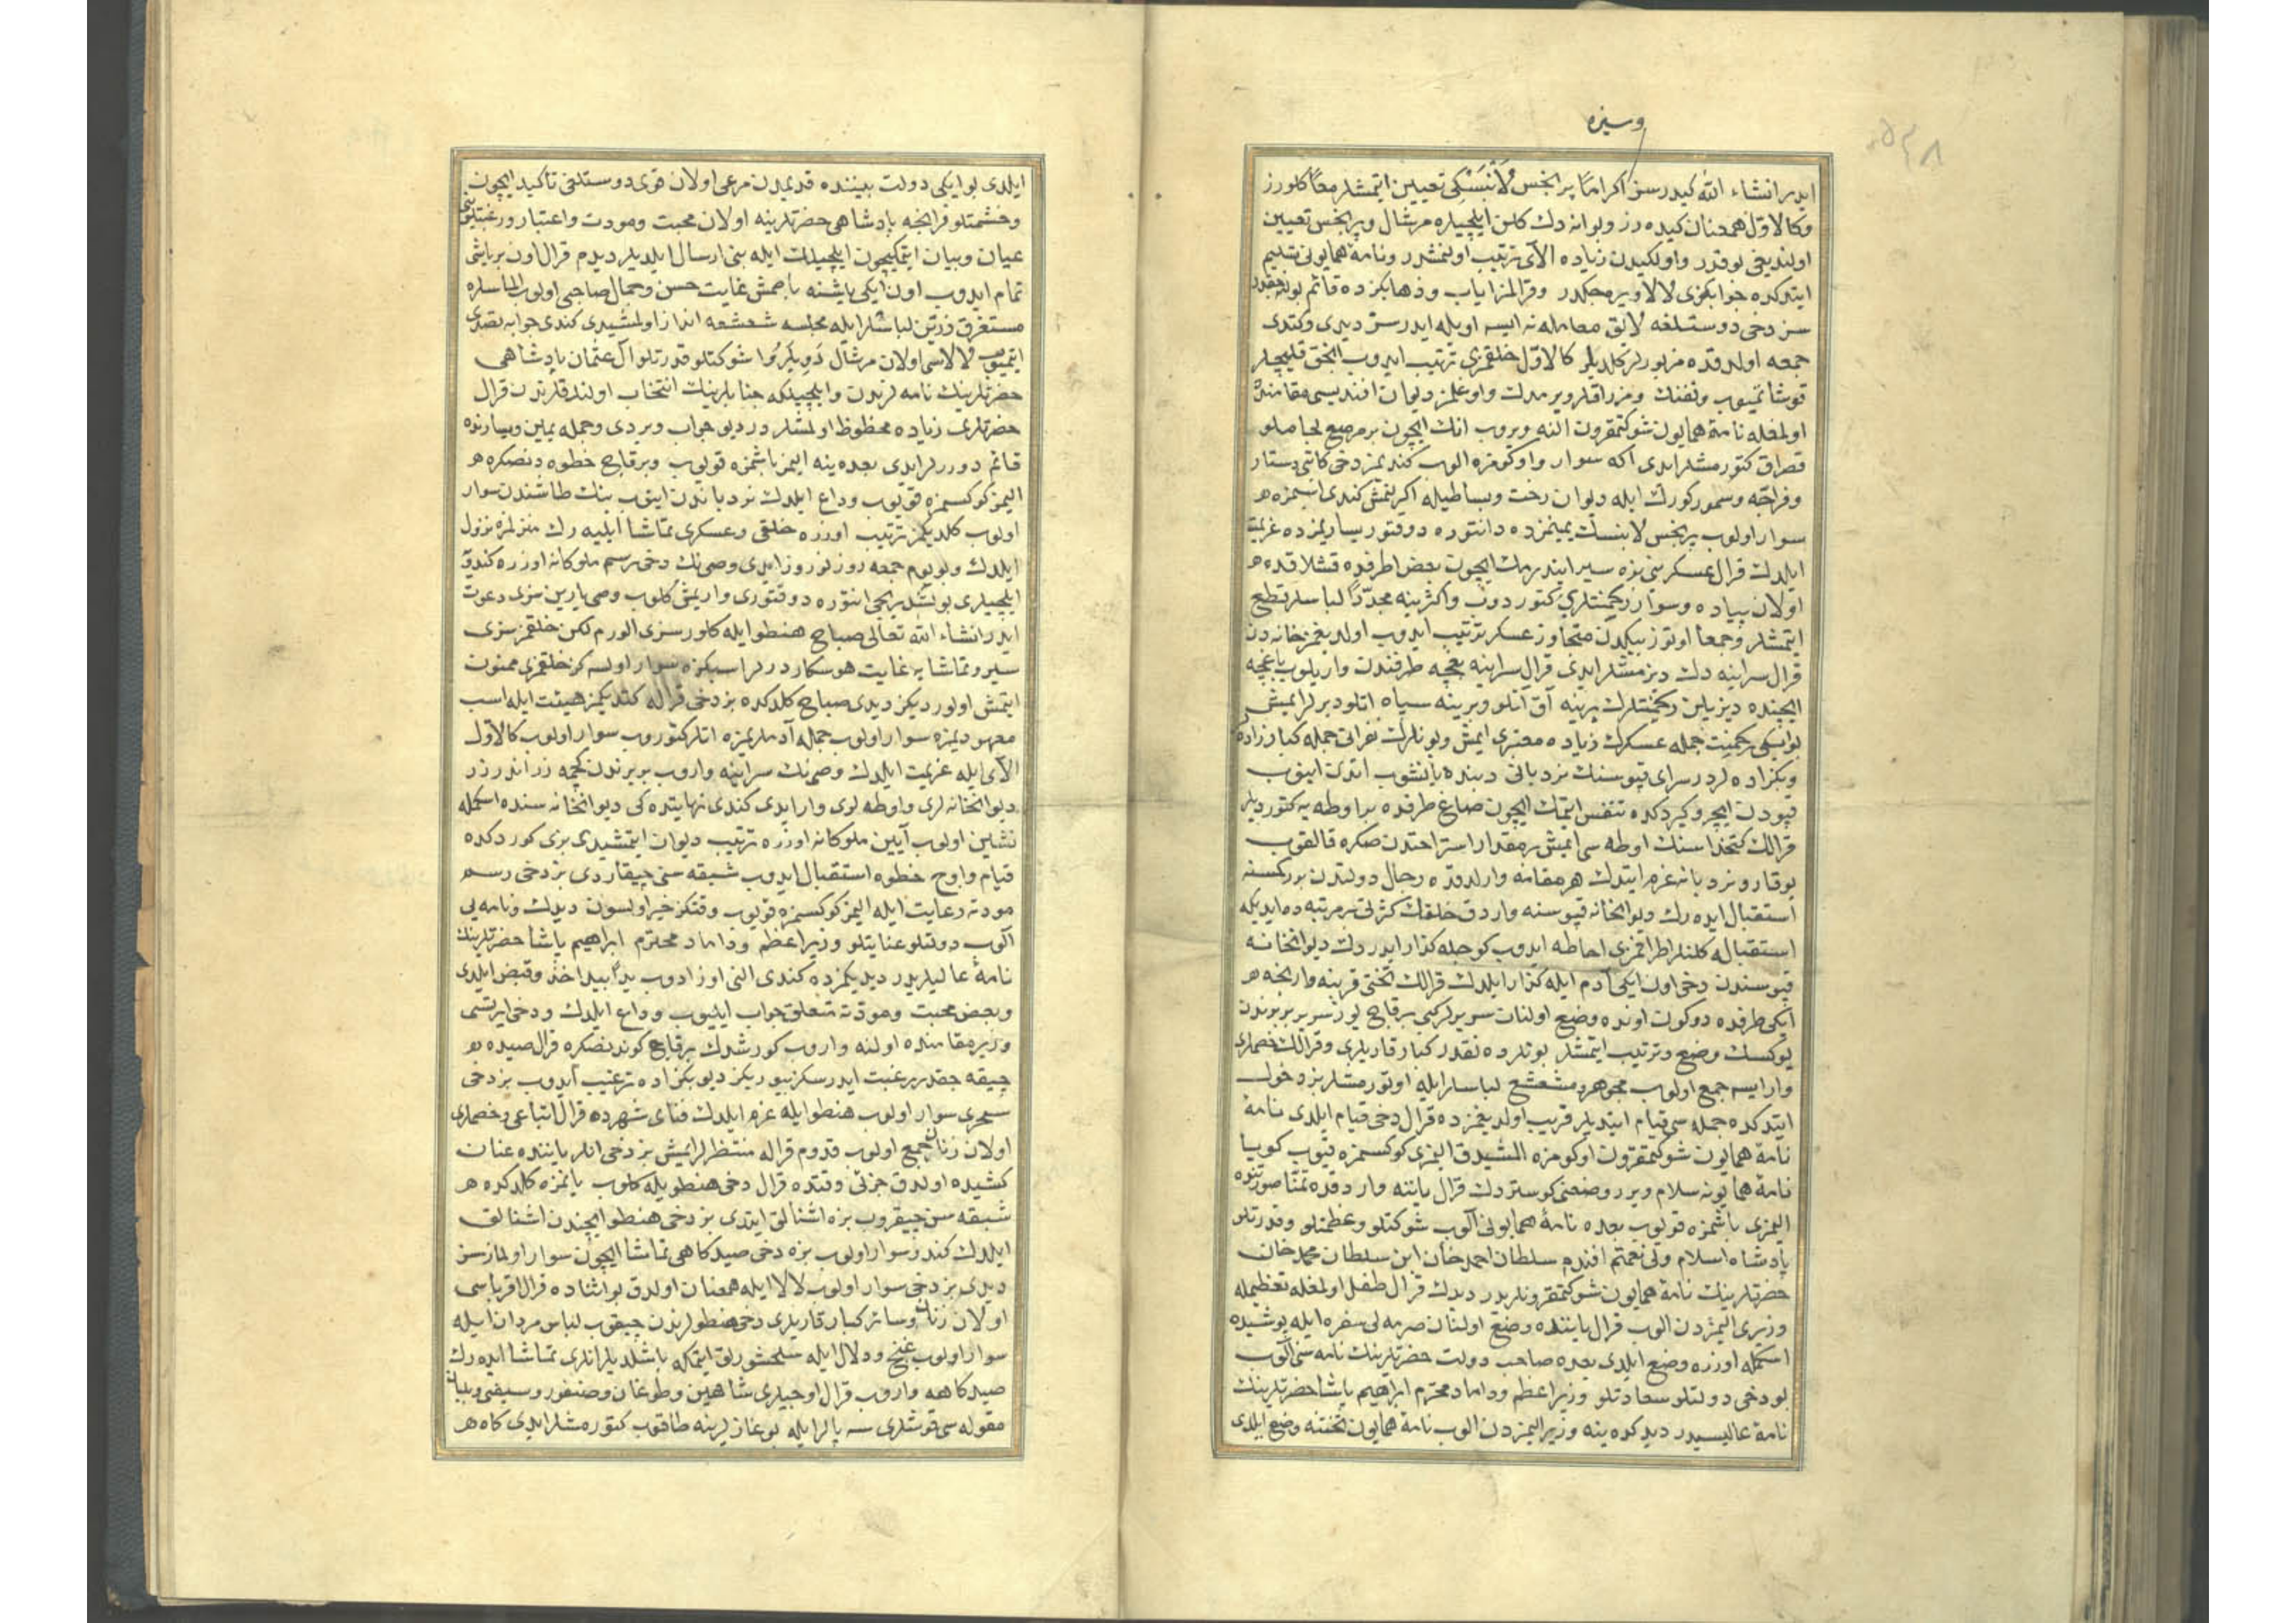 وسزه
ایدر انشاء الله كیدرسز اكراماً پرنجس لانبسكی تعیین ایتمشلر معاً كلورز
وكالاول همعنان كیده رز وبوانه دك كلن ایلچیلره مرشال وپرنجس تعیین
اولندیغی یوقدر واولكیدن زیاده الای ترتیب اولنمشدر ونامهٔ همایونی تسلیم
ایتدكده جوابكزی لالا ویره جكدر وقرالمز ایاب وذهابكزده قائم بولنه جقدر
سز دخی دوستلغه لایق معامله نه ایسه اویله ایدرسز دیدی وكتدی
جمعه اولدقده مزبورلر كلدیلر كالاول خلقمزی ترتیب ایدوب انجق قلیچلر
قوشاتمیوب وتفنك ومزراقلر ویرمدك واوغلمز دیوان افندیسی مقامنده
اولمغله نامهٔ همایون شوكتمقرون النه ویروب انك ایچون بر مرصع لجاملو
قصراق كتورمشلر ایدی اكه سوار واوكومزه الوب كندیمز دخی كاتبی دستار
وفراجه وسمور كورك ایله دیوان رخت وبساطیله اكرلنمش كندی اسبمزه
سوار اولوب پرنجس لانبسك یمینمزده دانتوره دوقتور یساریمزده عزیمت
ایلدك قرال عسكرینی بزه سیر ایتدرمك ایچون بعض اطرفده قشلاقده
اولان پیاده وسوار رجمنتلری كتوردوب واكثرینه مجدداً لباسلر قطع
ایتمشلر وجمعاً اوتوز بیكدن متجاوز عسكر ترتیب ایدوب اولدیغمز خانه دن
قرال سراینه دك دیزمشلر ایدی قرال سراینه بغچه طرفندن واریلوب باغچه
ایچنده دیزیلن رجمنتلرك برینه آق آتلو وبرینه سیاه اتلو دیرلر ایمش
بو ایكی رجمنت جمله عسكرك زیاده معتبری ایمش وبونلرك نفراتی جمله كبارزاده
وبكزاده لردر سرای قپوسنك نردبانی دبنده یانشوب اتدن اینوب
قپودن ایچرو كیردكده تنفس ایتمك ایچون صاغ طرفده بر اوطه یه كتوردیلر
قرالك كتخداسنك اوطه سی ایمش بر مقدار استراحتدن صكره قالقوب
یوقارو نردبانه عزم ایتدك هر مقامه وارلدقده رجال دولتدن بر كمسنه
استقبال ایده رك دیوانخانه قپوسنه واردق خلقك كثرتی بر مرتبه ده ایدیكه
استقباله كلنلر اطرافمزی احاطه ایدوب كوجله كذار ایدردك دیوانخانه
قپوسندن دخی اون ایكی آدم ایله كذار ایلدك قرالك تختی قربنه وارنجه
ایكی طرفده دوكون اونده وضع اولنان سریرلر كبی برقاچ یوز سریر بربرندن
یوكسك وضع وترتیب ایتمشلر بونلرده نقدر كبار قاریلری وقرالك خصملری
وار ایسه جمع اولوب مجوهر ومشعشع لباسلر ایله اوتورمشلر بز دخول
ایتدكده جمله سی قیام ایتدیلر قریب اولدیغمزده قرال دخی قیام ایلدی نامهٔ
نامهٔ همایون شوكتمقرون اوكومزه المشیدق الیمزی كوكسمزه قیوب كویا
نامهٔ همایونه سلام ویرر وضعنی كوستردك قرال یاننه واردقده تمنا صورتنده
الیمزی باشمزه قویوب بعده نامهٔ همایونی آلوب شوكتلو وعظمتلو وقدرتلو
پادشاه اسلام ولی نعمتم افندم سلطان احمد خان ابن سلطان محمد خان
حضرتلرینك نامهٔ همایون شوكتمقرونلریدر دیدك قرال طفل اولمغله تعظیمله
وزیری الیمزدن الوب قرال یاننده وضع اولنان صرمه لی سفره ایله پوشیده
اسكمله اوزره وضع ایلدی بعده صاحب دولت حضرتلرینك نامه سنی آلوب
بو دخی دولتلو سعادتلو وزیر اعظم وداماد محترم ابراهیم پاشا حضرتلرینك
نامهٔ عالیسیدر دیدكده ینه وزیر الیمزدن الوب نامهٔ همایون تختنه وضع ایلدی
ایلدی بو ایكی دولت بیننده قدیمدن مرعی اولان قوی دوستلغی تأكید ایچون
وحشمتلو فرانچه پادشاهی حضرتلرینه اولان محبت ومودت واعتبار ورغبتلرینی
عیان وبیان ایتمكیچون ایلچیلك ایله بنی ارسال ایلدیلر دیدم قرال اون بر یاشنی
تمام ایدوب اون ایكی یاشنه باصمش غایت حسن وجمال صاحبی اولوب الماسلره
مستغرق زرین لباسلر ایله مجلسه شعشعه انداز اولمشیدی كندی جوابه تصدی
ایتمیوب لالاسی اولان مرشال دویلروا شوكتلو قدرتلو آل عثمان پادشاهی
حضرتلرینك نامه لرندن وایلچیلكه جنابلرینك انتخاب اولندقلرندن قرال
حضرتلری زیاده محظوظ اولمشلردر دیو جواب ویردی وجمله یمین ویسارنده
قائم دوررلر ایدی بعده ینه الیمز باشمزه قویوب وبرقاچ خطوه دنصكره
الیمز كوكسمزه قویوب وداع ایلدك نردباندن اینوب بنك طاشندن سوار
اولوب كلدیكمز ترتیب اوزره خلقی وعسكری تماشا ایلیه رك منزلمزه نزول
ایلدك وبو یوم جمعه روز نوروز ایدی وصینك دخی رسم ملوكانه اوزره كندوی
ایلچیلری بولشدیریجی انتوره دوقتوری وارمش كلوب وصی یارین سزی دعوت
ایدر انشاء الله تعالی صباح هنطو ایله كلور سزی الورم لكن خلقمز سزی
سیر وتماشایه غایت هوسكاردرلر اسبكزه سوار اولسه كز خلقمزی ممنون
ایتمش اولوردیكز دیدی صباح كلدكده بز دخی قراله كتدیكمز هیئت ایله اسب
معهودیمزه سوار اولوب جمله آدملریمزه اتلر كتوروب سوار اولوب كالاول
الای ایله عزیمت ایلدك وصینك سراینه واروب بربرندن كچمه زراندرزر
دیوانخانه لری واوطه لری وار ایدی كندی نهایتده كی دیوانخانه سنده اسكمله
نشین اولوب آیین ملوكانه اوزره ترتیب دیوان ایتمشیدی بزی كوردكده
قیام واوج خطوه استقبال ایدوب شبقه سنی چیقاردی بز دخی رسم
مودته رعایت ایله الیمز كوكسمزه قویوب وقتكز خیر اولسون دیدك ونامه یی
آلوب دولتلو عنایتلو وزیر اعظم وداماد محترم ابراهیم پاشا حضرتلرینك
نامهٔ عالیلریدر دیدیكمزده كندی النی اوزادوب یداً بید اخذ وقبض ایلدی
وبعض محبت ومودته متعلق جواب ایدیوب وداع ایلدك ودخی ایرتسی
وزیر مقامنده اولنه واروب كورشدك برقاچ كوندنصكره قرال صیده
چیقه جقدر رغبت ایدرسكز بیوریكز دیو بكزاده ترغیب ایدوب بز دخی
سحری سوار اولوب هنطو ایله عزم ایلدك فنای شهرده قرال اتباعی وخصملری
اولان زنان جمع اولوب قدوم قراله منتظرلر ایمش بز دخی انلر یاننده عنان
كشیده اولدق جزئی وقتده قرال دخی هنطویله كلوب یانمزه كلدكده
شبقه سن چیقروب بزه اشنالق ایتدی بز دخی هنطو ایچندن اشنالق
ایلدك كندر سوار اولوب بزه دخی صیدكاهی تماشا ایچون سوار اولماز سز
دیدی بز دخی سوار اولوب لالا ایله همعنان اولدق بو اثناده قرال اقرباسی
اولان زنان وسائر كبار قاریلری دخی هنطولرندن چیقوب لباس مردان ایله
سوار اولوب غنج ودلال ایله سلحشورلق ایتمكه باشلدیلر انلری تماشا ایده رك
صیدكاهه واروب قرال اوجیلری شاهین وطوغان وصنقور وسیفی وبلبان
مقوله سی قوشلری سه پالر ایله بوغازلرینه طاقوب كتورمشلر ایدی كاه